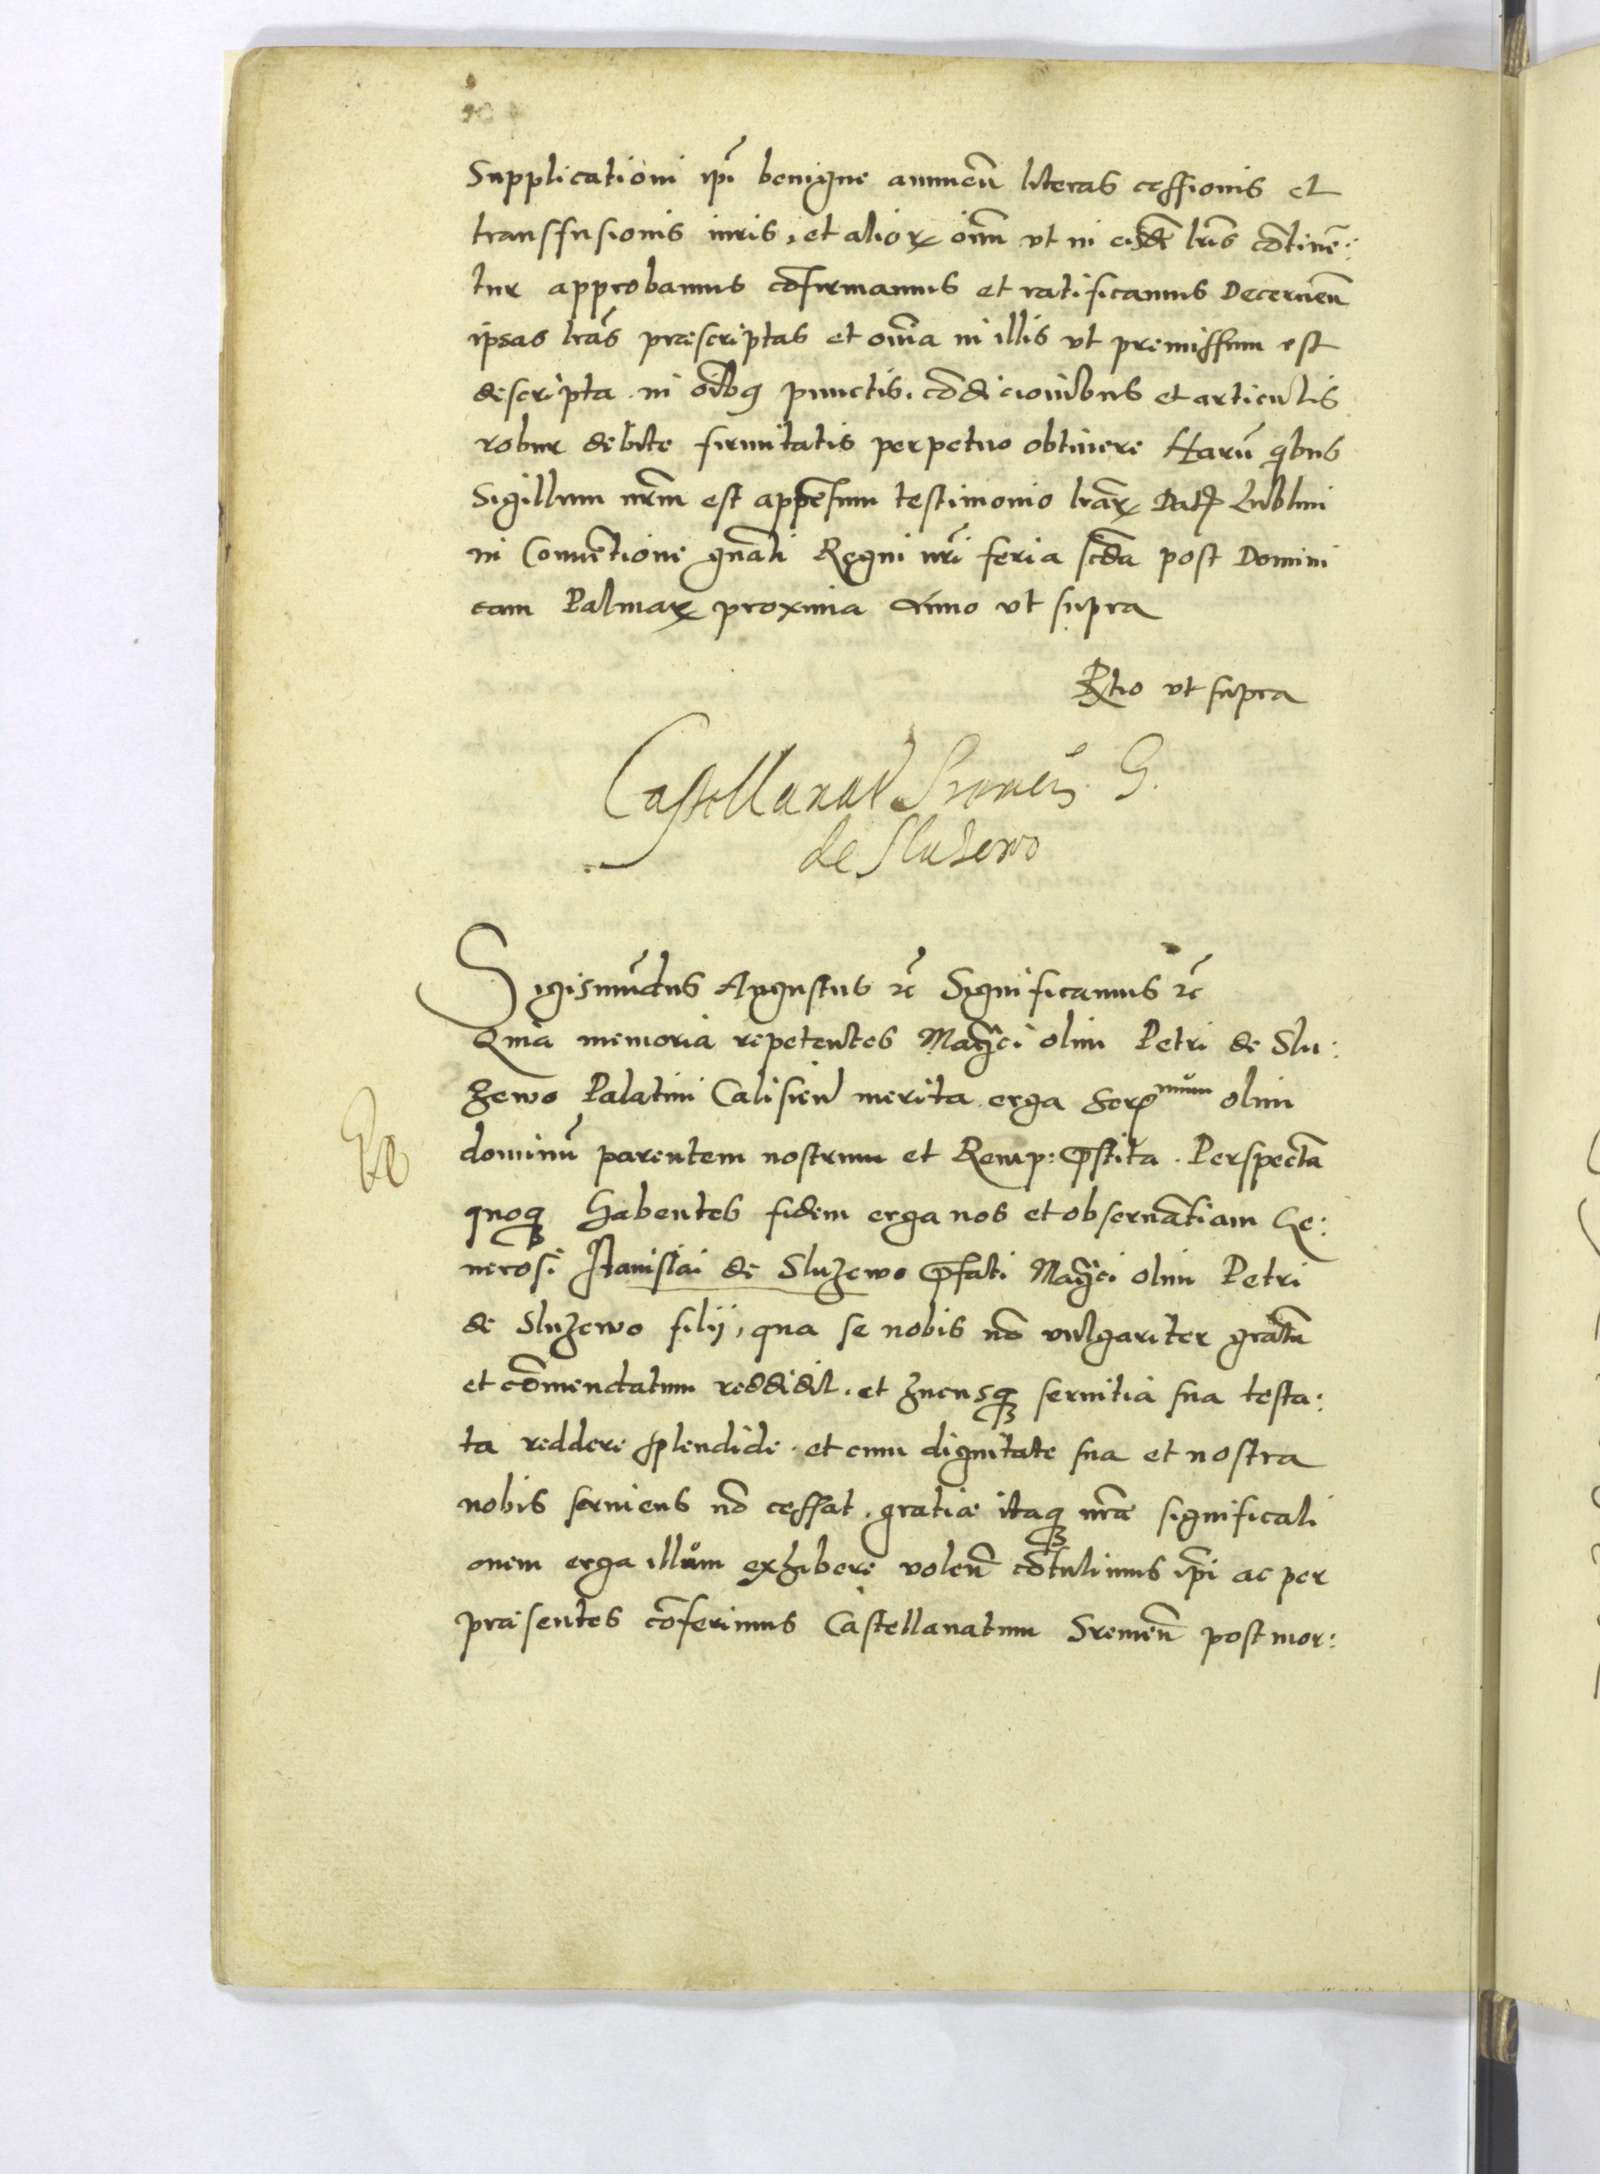 Supplicationi ipī benigne annuen̄ literas cessionis et
transfusionis iuris, et aliorꝝ oīum vt in eisdē lrīs cōtinē:
tur approbamus cōfirmamus et ratificamus Decernen̄
ipsas lrās præscriptas et om̄ia in illis vt premissum est
descripta in oībꝰ punctis, cōdicionibus et articulis
robur debite firmitatis perpetuo obtinere Harū qibus
Sigillum nr̄m est appēsum testimonio lrārꝝ Datꝭ Lublini
in Conuētione gn̄ali Regni nrī feria scd̄a post Domini
cam Palmarꝝ proxima Anno vt supra
Rtio vt supra
Castellanat Sremeń G.
de Sluzewo
Sigismūdus Augustus rc̄ Significamus rc̄
Quia memoria repetentes Mag̃ci olim Petri de Slu:
zewo Palatini Calisien̄ merita erga Serꝰmum olim
dominū parentem nostrum et Remp: p̄stita. Perspectā
quoqꝫ habentes fidem erga nos et obseruātiam Ge:
nerosi Stanislai de Sluzewo p̄fati Mag̃ci olim Petri
de Sluzewo filij, qua se nobis nō vulgariter gratū
et cōmendatum reddidit, et hucusqꝫ seruitia sua testa:
ta reddere splendide et cum dignitate sua et nostra
nobis seruiens nō cessat, gratiæ itaqꝫ nr̄æ significati
onem erga illum exhibere volen̄ cōtulimus ipī ac per
præsentes cōferimus Castellanatum Sremen̄ post mor: